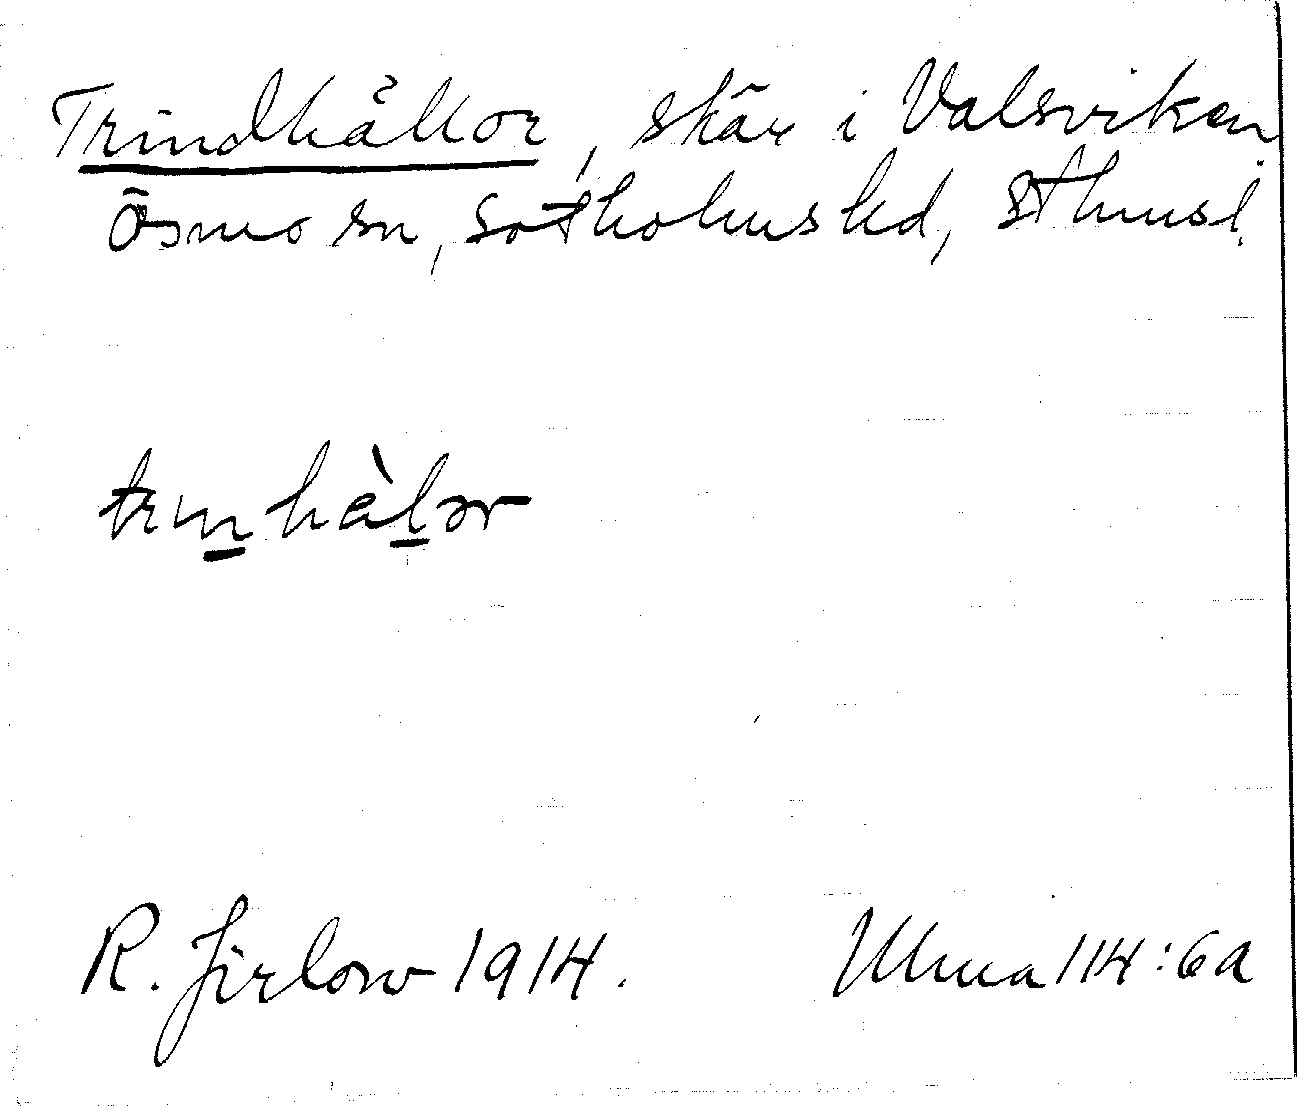 Trindhållor, skär i Valsviken
Ösmo sn, Sotholms hd, Sthmsl.
trın̲hàl̲ər
R. Jirlow 1914.
Ulma 114:6a